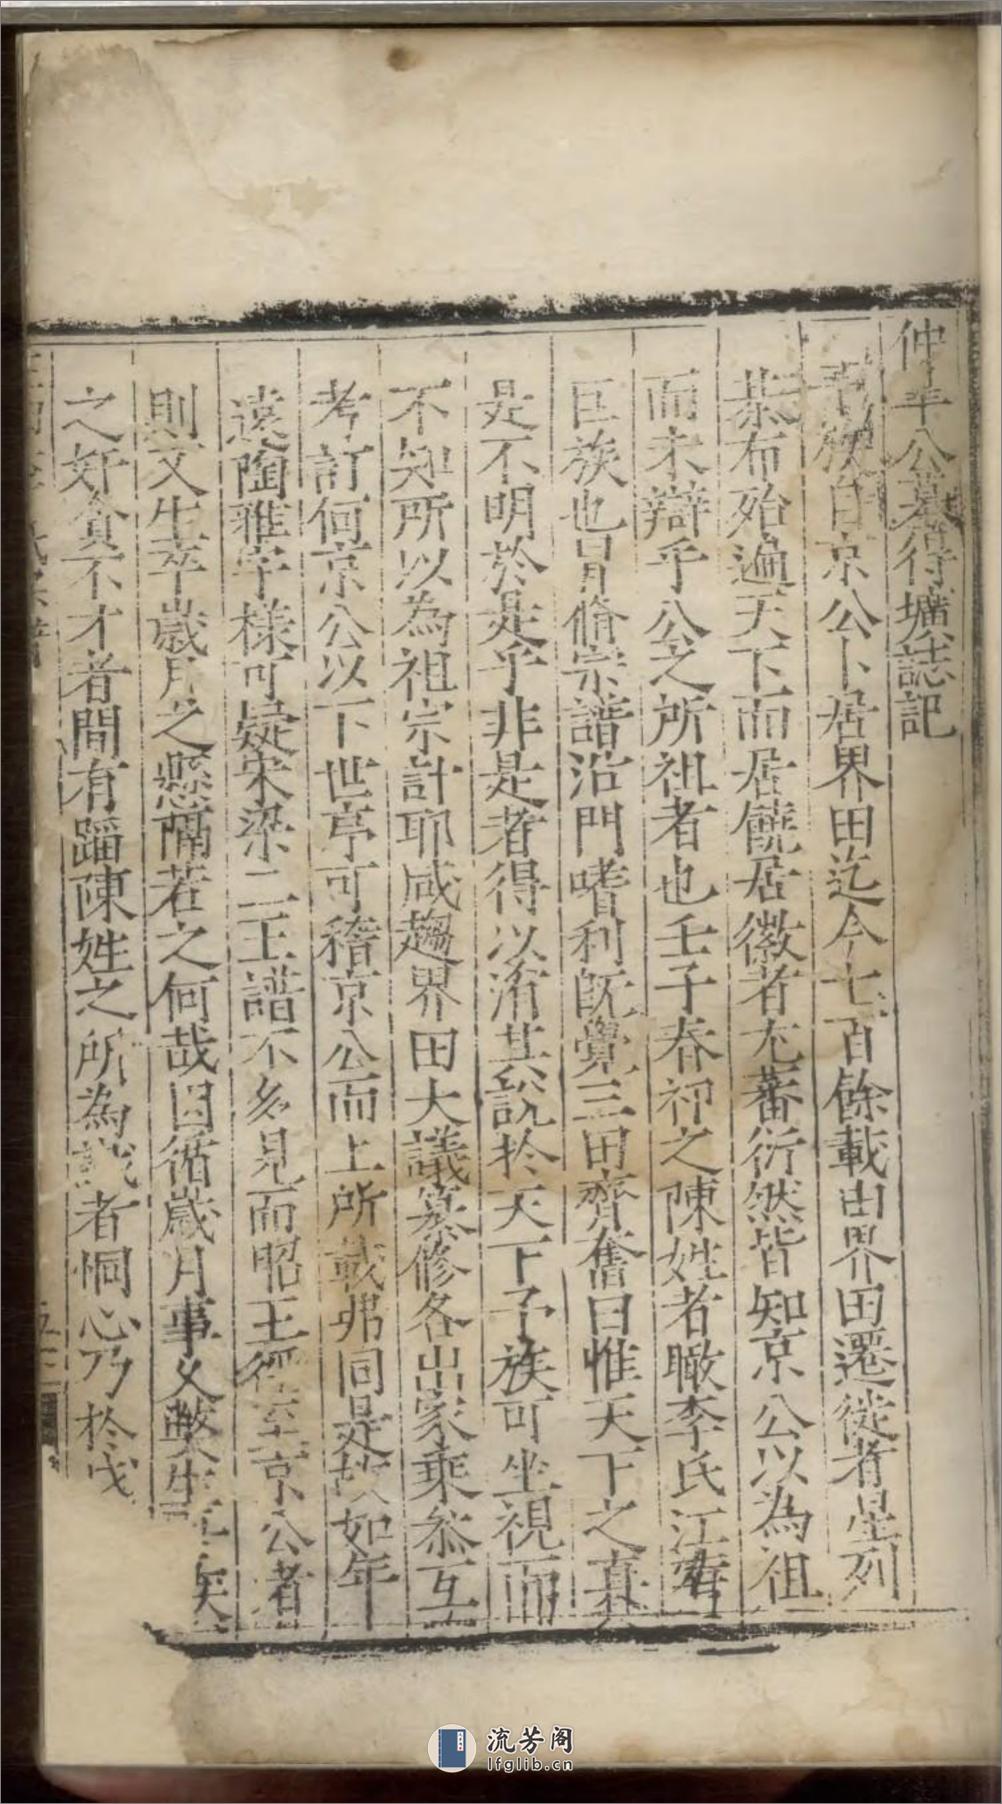 仲平公墓得壙誌記
予族自京公卜居界田迄今七百餘載由界田遷徙者星列
棊布殆遍天下而居饒居徽者尤蕃衍然皆知京公以為祖
而未辯乎公之所祖者也壬子春祁之陳姓者瞰李氏江右
巨族也冒脩宗譜沿門嗜利旣覺三田齊奮曰惟天下之真
是不明於是乎非是者得以淆其說於天下予族可坐視而
不知所以為祖宗計耶咸趨界田大議纂修各出家乘叅互
考訂何京公以下世亭可稽京公而上所載弗同是故如年
遠陶雅字樣可疑宋梁二王譜不多見而昭王徑至京公者
則又生卒歲月之懸隔若之何哉因循歲月事乂弊生矣
之奸貪不才者間有蹈陳姓之所為識者恫心乃於戊
流芳阁
lfglib.cn